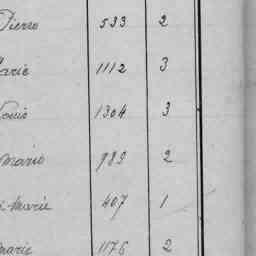 Pierre 533 2
Marie 1112 3
Louis 1304 3
Marie 989 2
Marie 407 1
Marie 1176 2